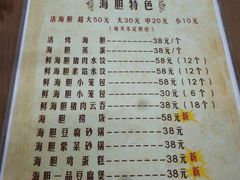 海胆特色
活海胆 超大50元 大30元 中20元 小10元
(每天不定供应)
活烤海胆--------38元/个
海胆蒸蛋--------38元/个
鲜海胆猪肉水饺------58元(12个)
鲜海胆素馅水饺------58元(12个)
鲜海胆小笼包-------58元(6个)
鲜海胆小笼包-------38元(4个)
鲜海胆猪肉云吞------38元(18个)
海胆捞饭---------58元 新
海胆豆腐砂锅-------38元
海胆紫菜砂锅-------38元
海胆鸡蛋糕--------38元 新
海胆一品豆腐煲------38元 新